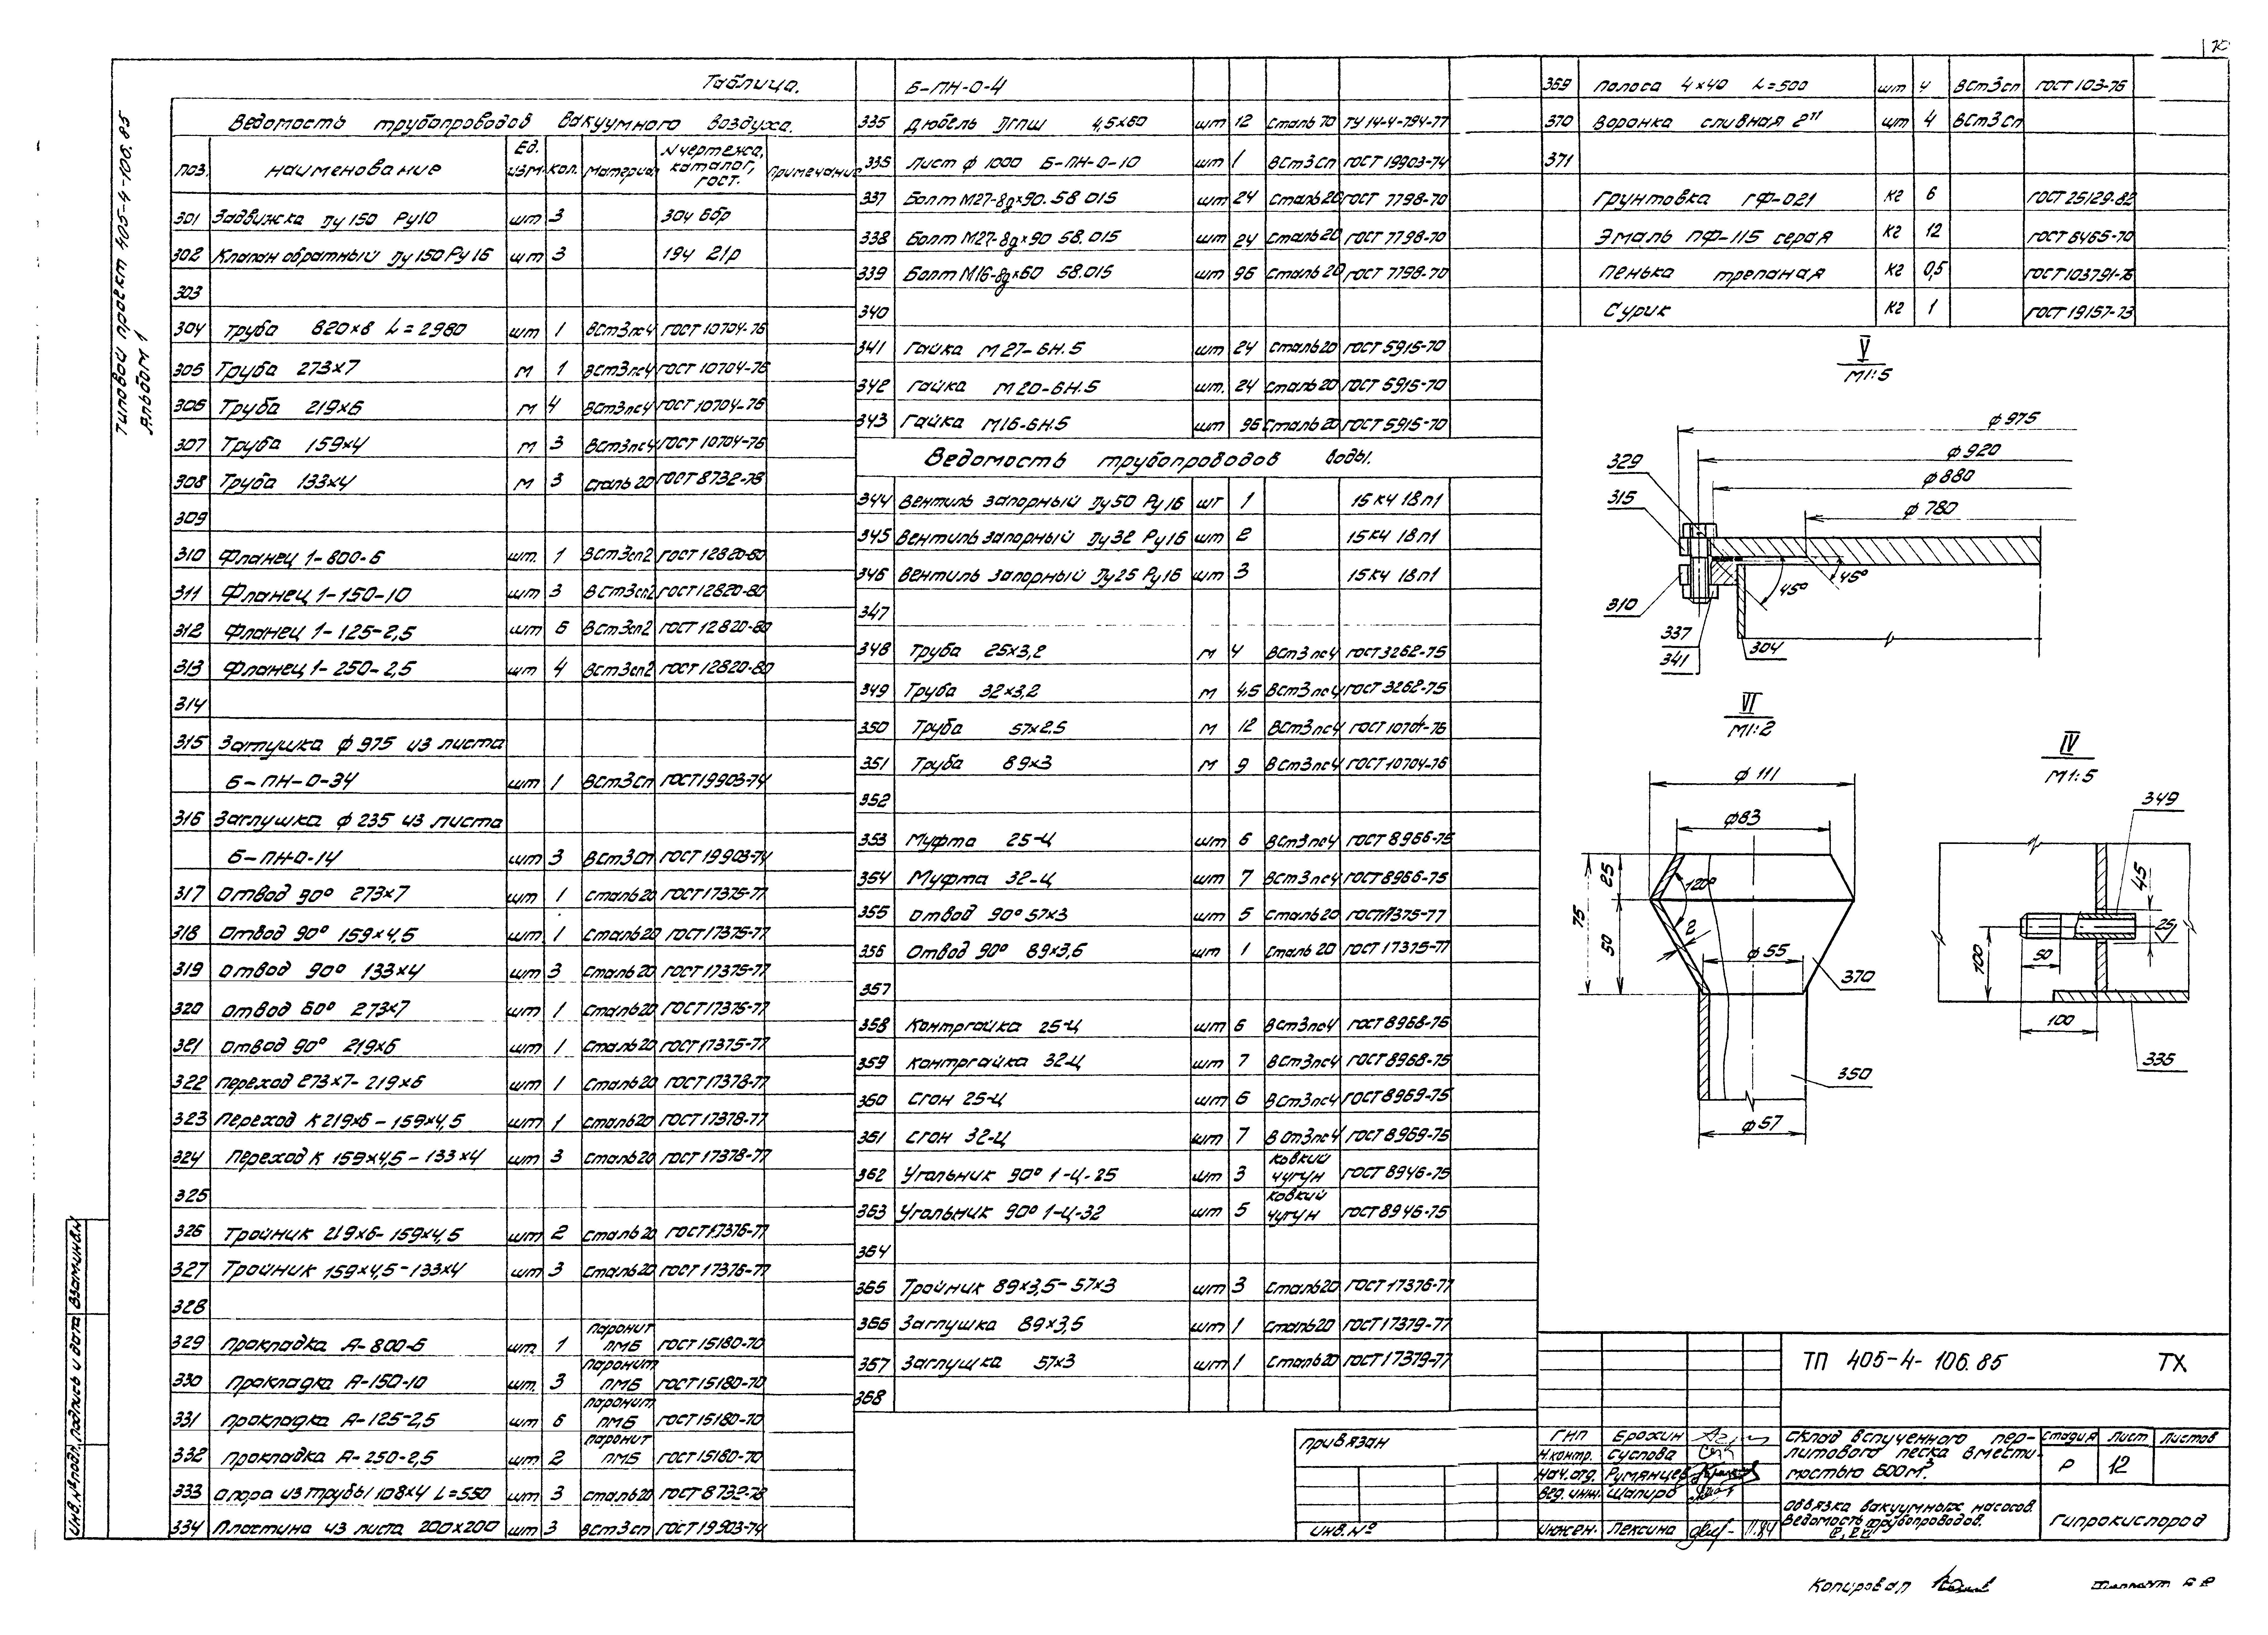 Типовой проект 405-4-106.85
Альбом 1
Таблица.
Ведомость трубопроводов вакуумного воздуха.
поз. наименование Ед. изм. кол. Материал N чертежа, каталог, гост. Примечание
301 Задвижка Ду 150 Ру10 шт 3 30ч 6бр
302 Клапан обратный Ду 150 Ру 16 шт 3 19ч 21р
303
304 Труба 820×8 L=2980 шт 1 ВСт3пс4 ГОСТ 10704-76
305 Труба 273×7 м 1 ВСт3пс4 ГОСТ 10704-76
306 Труба 219×6 м 4 ВСт3пс4 ГОСТ 10704-76
307 Труба 159×4 м 3 ВСт3пс4 ГОСТ 10704-76
308 Труба 133×4 м 3 Сталь 20 ГОСТ 8732-78
309
310 Фланец 1-800-6 шт. 1 ВСт3сп2 ГОСТ 12820-80
311 Фланец 1-150-10 шт 3 ВСт3сп2 ГОСТ 12820-80
312 Фланец 1-125-2,5 шт 6 ВСт3сп2 ГОСТ 12820-80
313 Фланец 1-250-2,5 шт 4 ВСт3сп2 ГОСТ 12820-80
314
315 Заглушка ф 975 из листа
Б-ПН-О-34 шт 1 ВСт3сп ГОСТ 19903-74
316 Заглушка ф 235 из листа
Б-ПН-О-14 шт 3 ВСт3сп ГОСТ 19903-74
317 Отвод 90° 273×7 шт 1 Сталь 20 ГОСТ 17375-77
318 Отвод 90° 159×4,5 шт 1 Сталь 20 ГОСТ 17375-77
319 Отвод 90° 133×4 шт 3 Сталь 20 ГОСТ 17375-77
320 Отвод 60° 273×7 шт 1 Сталь 20 ГОСТ 17375-77
321 Отвод 90° 219×6 шт 1 Сталь 20 ГОСТ 17375-77
322 Переход 273×7-219×6 шт 1 Сталь 20 ГОСТ 17378-77
323 Переход К 219×6-159×4,5 шт 1 Сталь 20 ГОСТ 17378-77
324 Переход К 159×4,5-133×4 шт 3 Сталь 20 ГОСТ 17378-77
325
326 Тройник 219×6-159×4,5 шт 2 Сталь 20 ГОСТ 17376-77
327 Тройник 159×4,5-133×4 шт 3 Сталь 20 ГОСТ 17376-77
328
329 Прокладка А-800-6 шт. 1 паронит ПМБ ГОСТ 15180-70
330 Прокладка А-150-10 шт. 3 паронит ПМБ ГОСТ 15180-70
331 Прокладка А-125-2,5 шт 6 паронит ПМБ ГОСТ 15180-70
332 Прокладка А-250-2,5 шт 2 паронит ПМБ ГОСТ 15180-70
333 Опора из трубы 108×4 L=550 шт 3 Сталь 20 ГОСТ 8732-78
334 Пластина из листа 200×200 шт 3 ВСт3сп ГОСТ 19903-74
Б-ПН-О-4
335 Дюбель ДГПШ 4,5×60 шт 12 Сталь 70 ТУ 14-4-794-77
335 Лист ф 1000 Б-ПН-О-10 шт 1 ВСт3сп ГОСТ 19903-74
337 Болт М27-8g×90.58.015 шт 24 Сталь 20 ГОСТ 7798-70
338 Болт М27-8g×90 58.015 шт 24 Сталь 20 ГОСТ 7798-70
339 Болт М16-8g×60 58.015 шт 96 Сталь 20 ГОСТ 7798-70
340
341 Гайка М27-6Н.5 шт 24 Сталь 20 ГОСТ 5915-70
342 Гайка М20-6Н.5 шт. 24 Сталь 20 ГОСТ 5915-70
343 Гайка М16-6Н.5 шт 96 Сталь 20 ГОСТ 5915-70
Ведомость трубопроводов воды.
344 Вентиль запорный Ду 50 Ру 16 шт 1 15кч 18п1
345 Вентиль запорный Ду 32 Ру 16 шт 2 15кч 18п1
346 Вентиль запорный Ду 25 Ру 16 шт 3 15кч 18п1
347
348 Труба 25×3,2 м 4 ВСт3пс4 ГОСТ 3262-75
349 Труба 32×3,2 м 4,5 ВСт3пс4 ГОСТ 3262-75
350 Труба 57×2.5 м 12 ВСт3пс4 ГОСТ 10704-76
351 Труба 89×3 м 9 ВСт3пс4 ГОСТ 10704-76
352
353 Муфта 25-Ц шт 6 ВСт3пс4 ГОСТ 8966-75
354 Муфта 32-Ц шт 7 ВСт3пс4 ГОСТ 8966-75
355 Отвод 90° 57×3 шт 5 Сталь 20 ГОСТ 17375-77
356 Отвод 90° 89×3,5 шт 1 Сталь 20 ГОСТ 17375-77
357
358 Контргайка 25-Ц шт 6 ВСт3пс4 ГОСТ 8968-75
359 Контргайка 32-Ц шт 7 ВСт3пс4 ГОСТ 8968-75
360 Сгон 25-Ц шт 6 ВСт3пс4 ГОСТ 8969-75
361 Сгон 32-Ц шт 7 ВСт3пс4 ГОСТ 8969-75
362 Угольник 90° 1-Ц-25 шт 3 ковкий чугун ГОСТ 8946-75
363 Угольник 90° 1-Ц-32 шт 5 ковкий чугун ГОСТ 8946-75
364
365 Тройник 89×3,5-57×3 шт 3 Сталь 20 ГОСТ 17376-77
366 Заглушка 89×3,5 шт 1 Сталь 20 ГОСТ 17379-77
367 Заглушка 57×3 шт 1 Сталь 20 ГОСТ 17379-77
368
369 Полоса 4×40 L=500 шт 4 ВСт3сп ГОСТ 103-76
370 Воронка сливная 2" шт 4 ВСт3сп
371
Грунтовка ГФ-021 кг 6 ГОСТ 25129-82
Эмаль ПФ-115 серая кг 12 ГОСТ 6465-70
Пенька трепаная кг 0,5 ГОСТ 103791-76
Сурик кг 1 ГОСТ 19157-73
V
М1:5
ф 975
ф 920
ф 880
ф 780
329
315
310
337
341
304
45°
45°
VI
М1:2
ф 111
ф83
75
25
50
120°
2
ф 55
370
350
ф 57
IV
М1:5
349
45
25
100
50
100
335
Привязан
Инв. №
ТП 405-4-106.85 ТХ
ГНП Ерохин
Н.контр. Суслова
Нач.отд. Румянцев
Вед. инж. Шапиро
Инжен. Лексина 11.84
Склад вспученного пер-
литового песка вмести-
мостью 600м³.
Стадия Лист Листов
Р 12
Обвязка вакуумных насосов.
Ведомость трубопроводов.
Гипрокислород
Инв.№ подл. Подпись и дата Взам.инв.№
Копировал